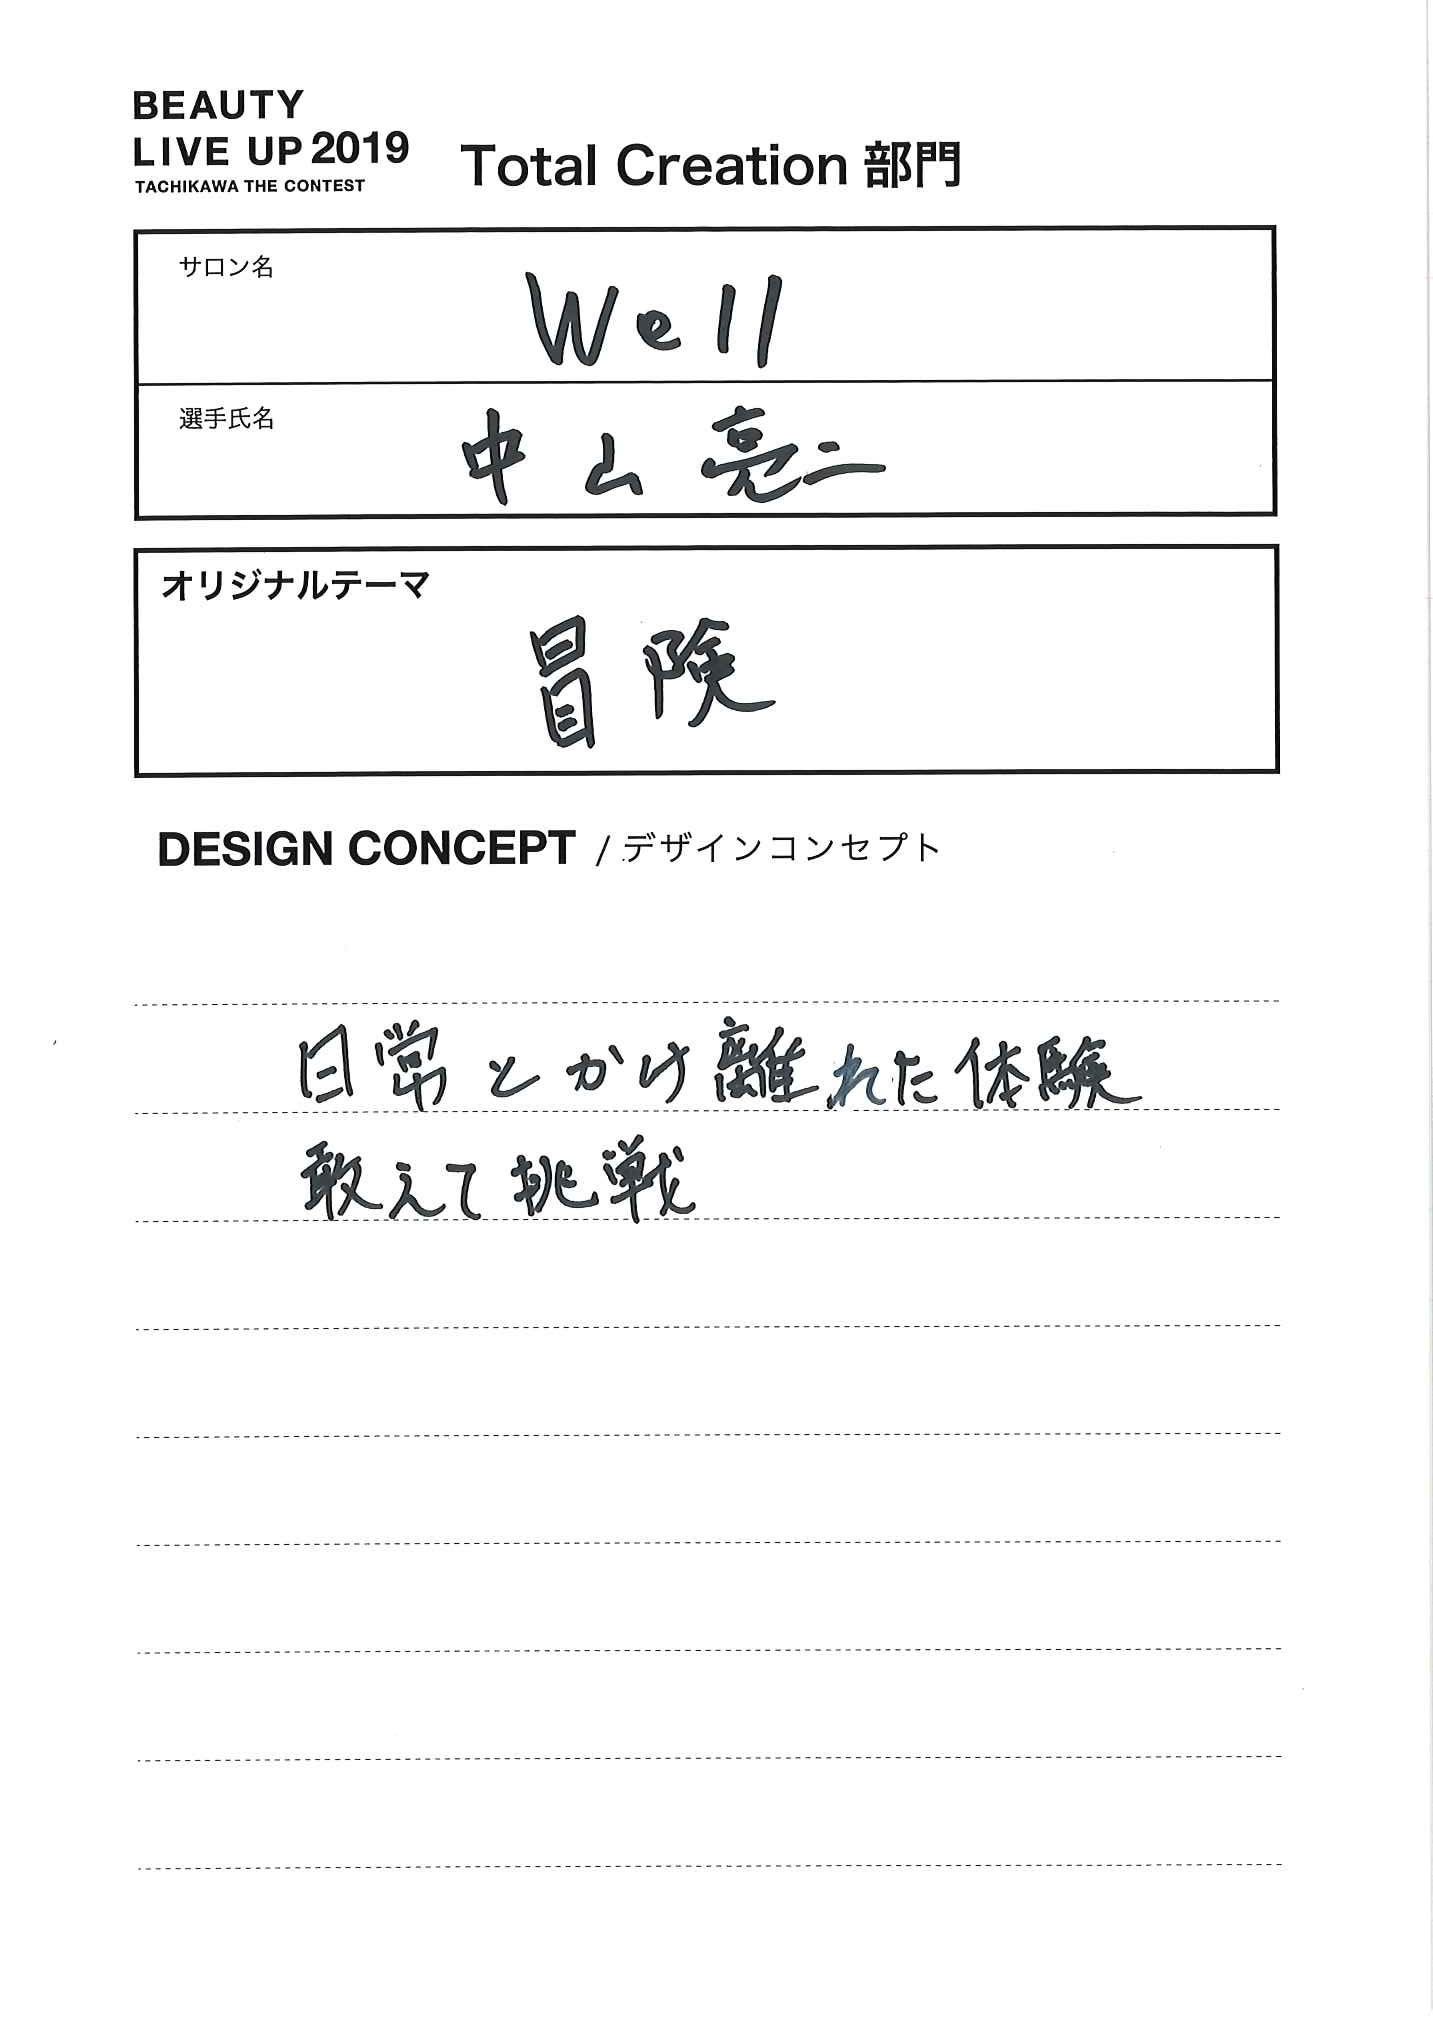 BEAUTY
LIVE UP 2019
TACHIKAWA THE CONTEST
Total Creation 部門
サロン名
Well
選手氏名
中山亮二
オリジナルテーマ
冒険
DESIGN CONCEPT / デザインコンセプト
日常とかけ離れた体験
敢えて挑戦